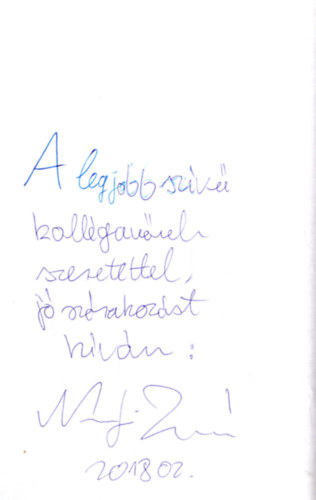 A legjobb szívű
kolléganőnek
szeretettel,
jó szórakozást
kíván:
2018 02.